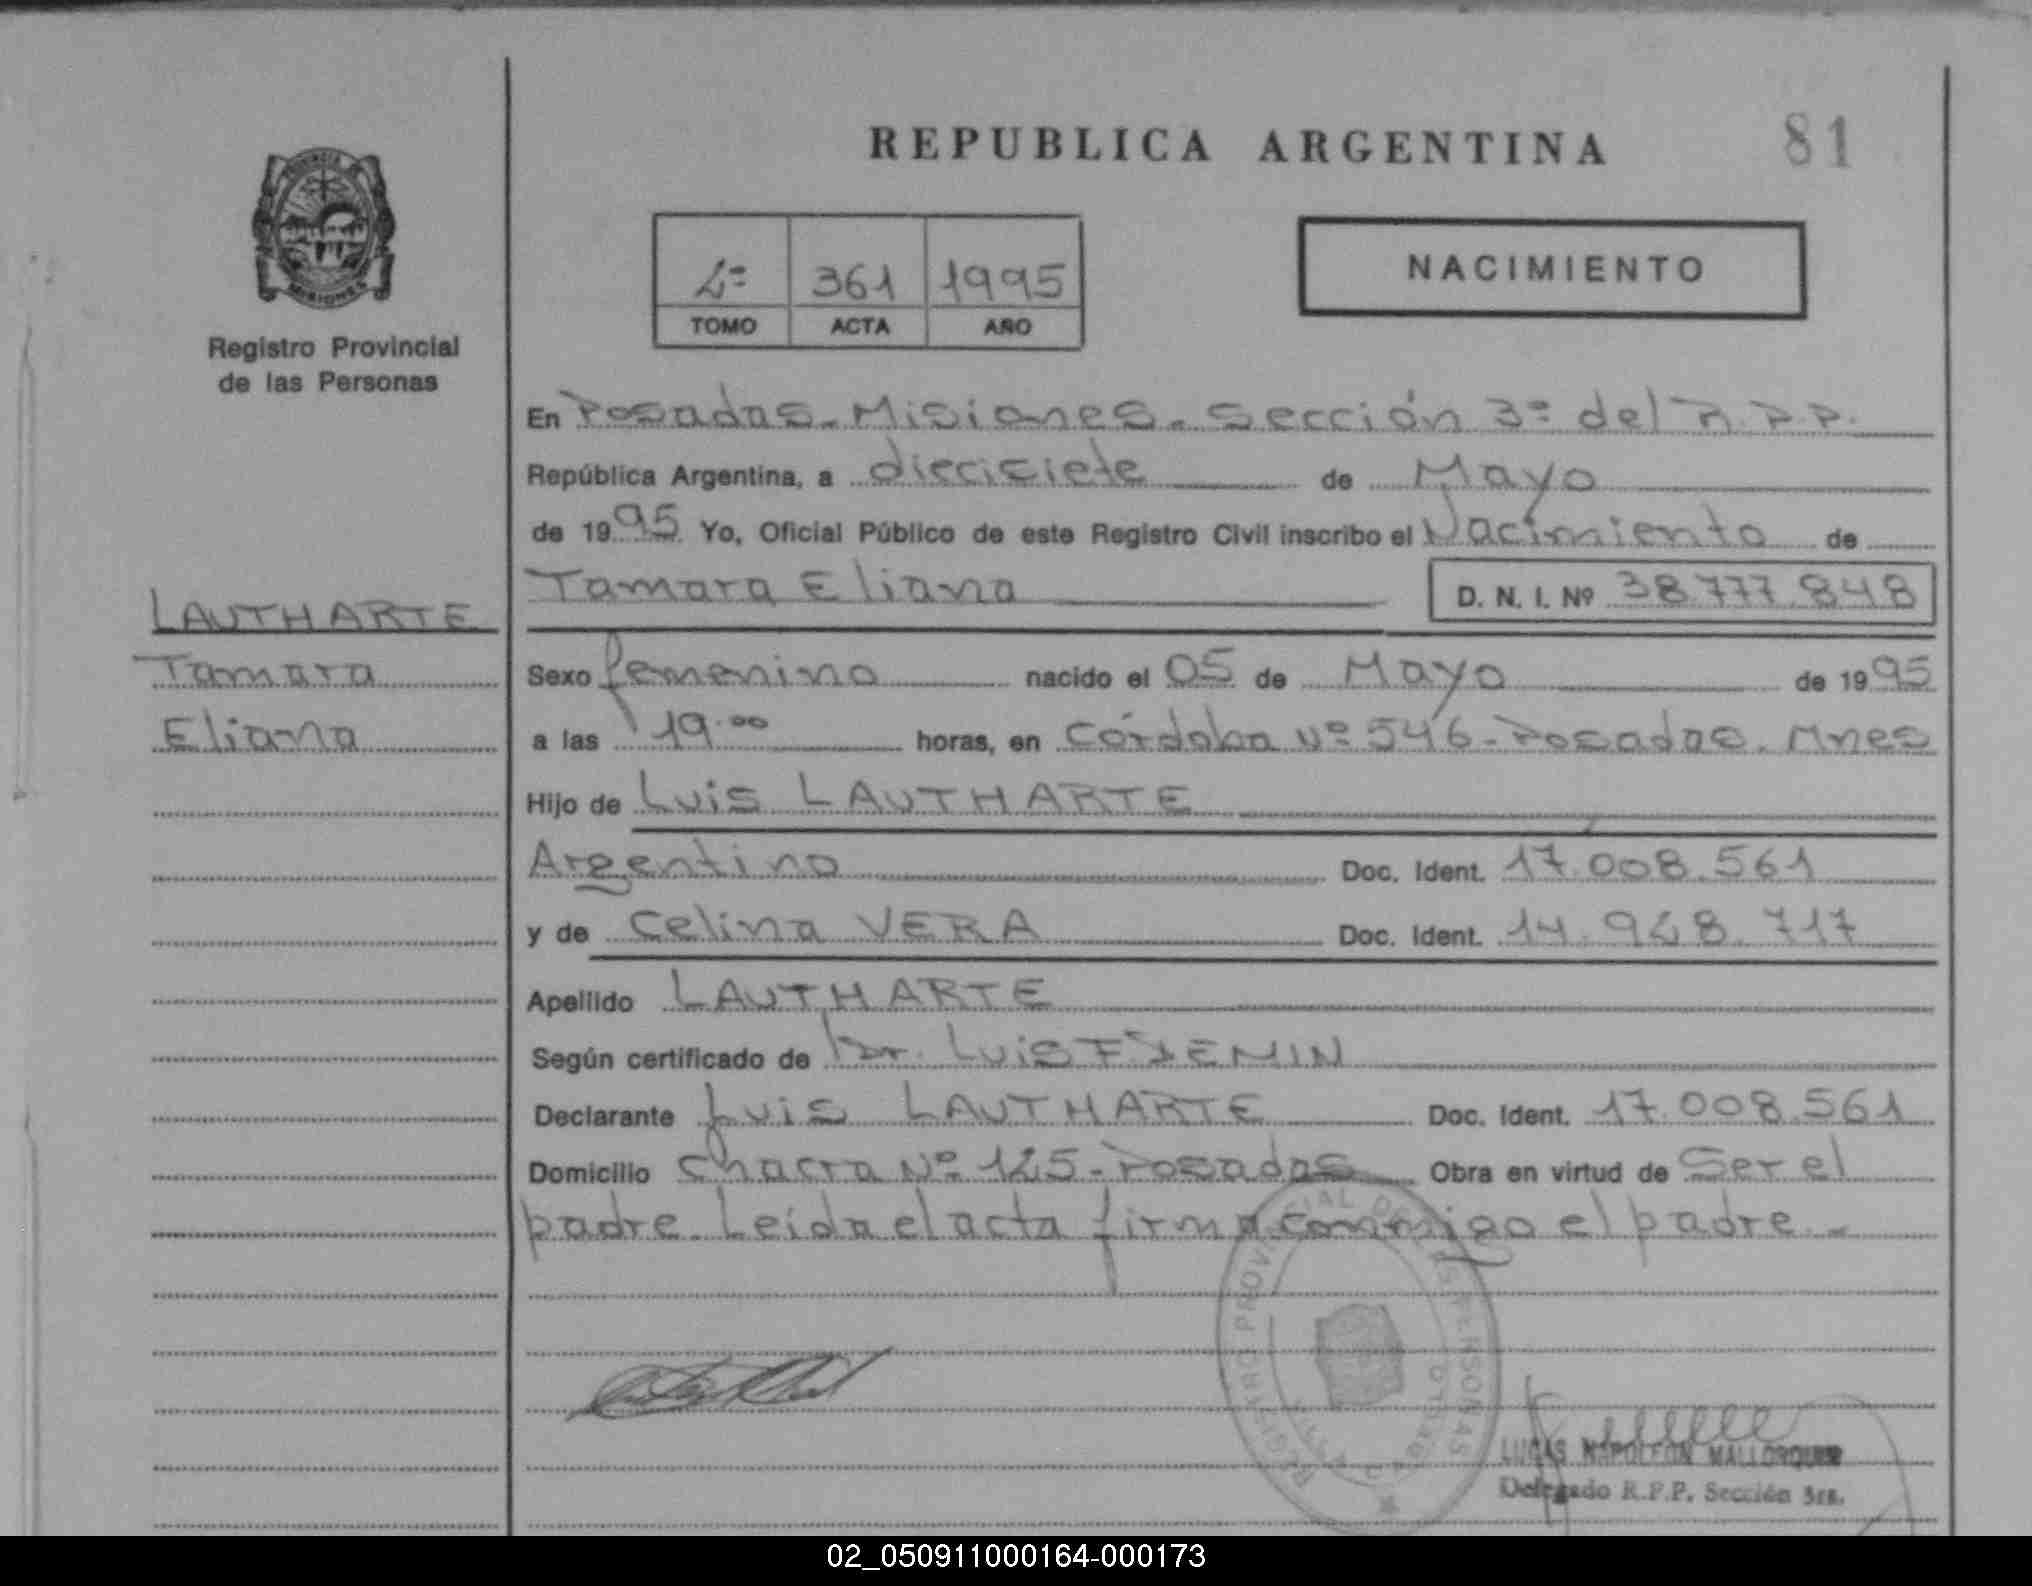 REPUBLICA ARGENTINA
81
PROVINCIA DE
MISIONES
Registro Provincial
de las Personas
2º 361 1995
TOMO ACTA AÑO
NACIMIENTO
En Posadas - Misiones - Sección 3º del R.P.P.
República Argentina, a diecisiete de Mayo
de 1995 Yo, Oficial Público de este Registro Civil inscribo el Nacimiento de
Tamara Eliana D. N. I. Nº 38.777.848
LAUTHARTE
Tamara
Eliana
Sexo femenino nacido el 05 de Mayo de 1995
a las 19.00 horas, en Córdoba Nº 546 - Posadas. Mnes
Hijo de Luis LAUTHARTE
Argentino Doc. Ident. 17.008.561
y de Celina VERA Doc. Ident. 14.948.717
Apellido LAUTHARTE
Según certificado de Dr. Luis F.
Declarante Luis LAUTHARTE Doc. Ident. 17.008.561
Domicilio Chacra Nº 125 - Posadas Obra en virtud de Ser el
padre. Leída el acta firma conmigo el padre.-
REGISTRO PROVINCIAL DE LAS PERSONAS
LUCAS NAPOLEON
Delegado R.P.P. Sección 3ra.
02_050911000164-000173